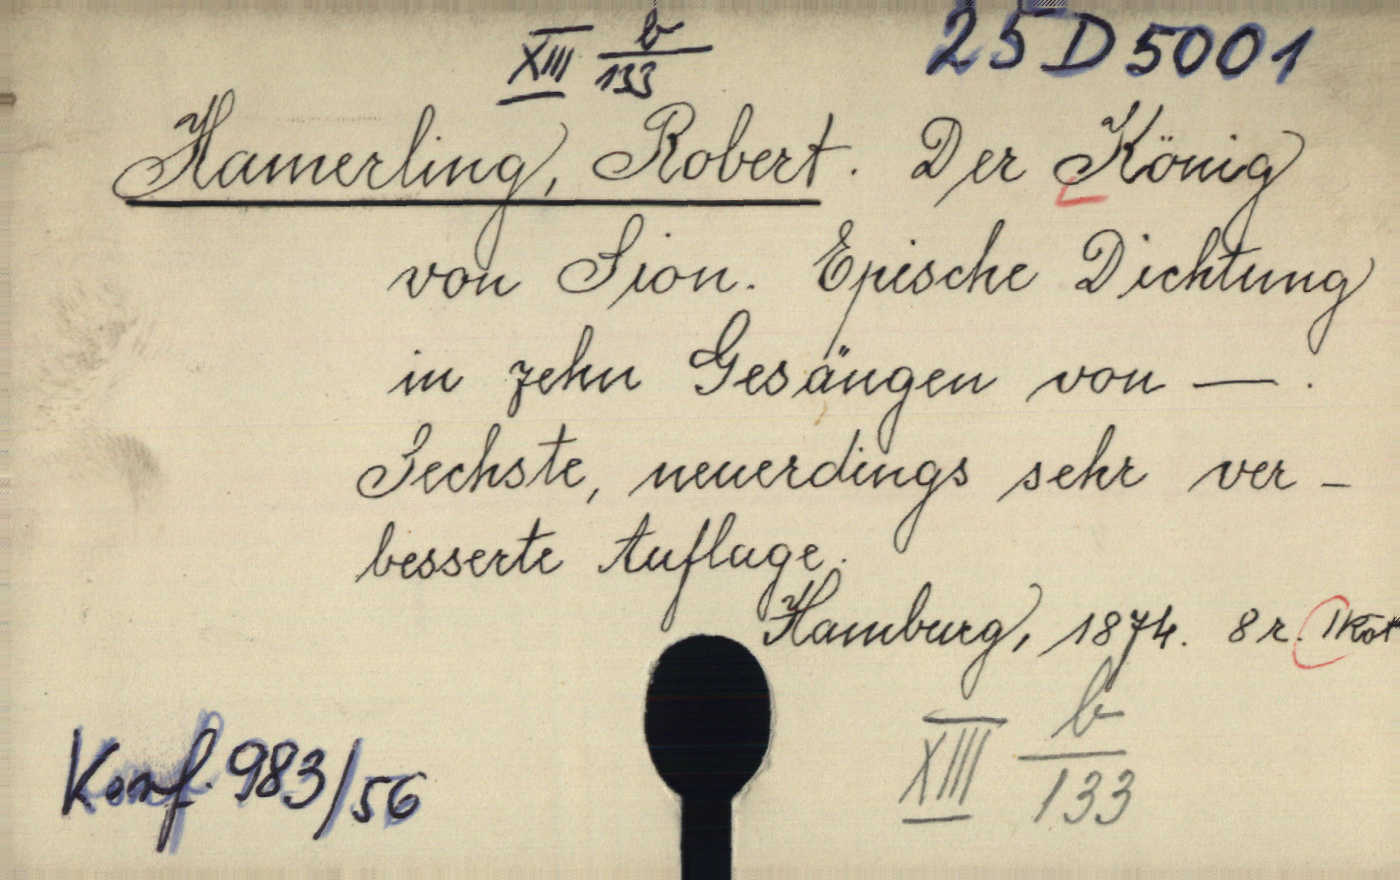 XIII b/133 25 D 5001
Hamerling, Robert. Der König
von Sion. Epische Dichtung
in zehn Gesängen von — .
Sechste, neuerdings sehr ver-
besserte Auflage.
Hamburg, 1874. 8r. 1 köt
XIII b/133
Konf. 983/56